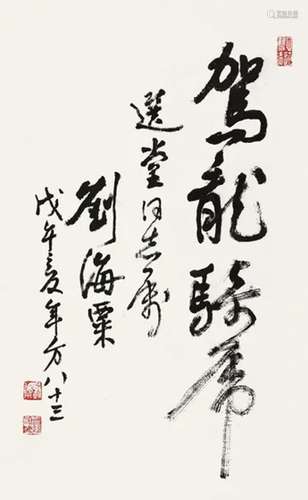 駕龍騎虎
選堂同志屬
劉海粟
戊午夏年方八十三